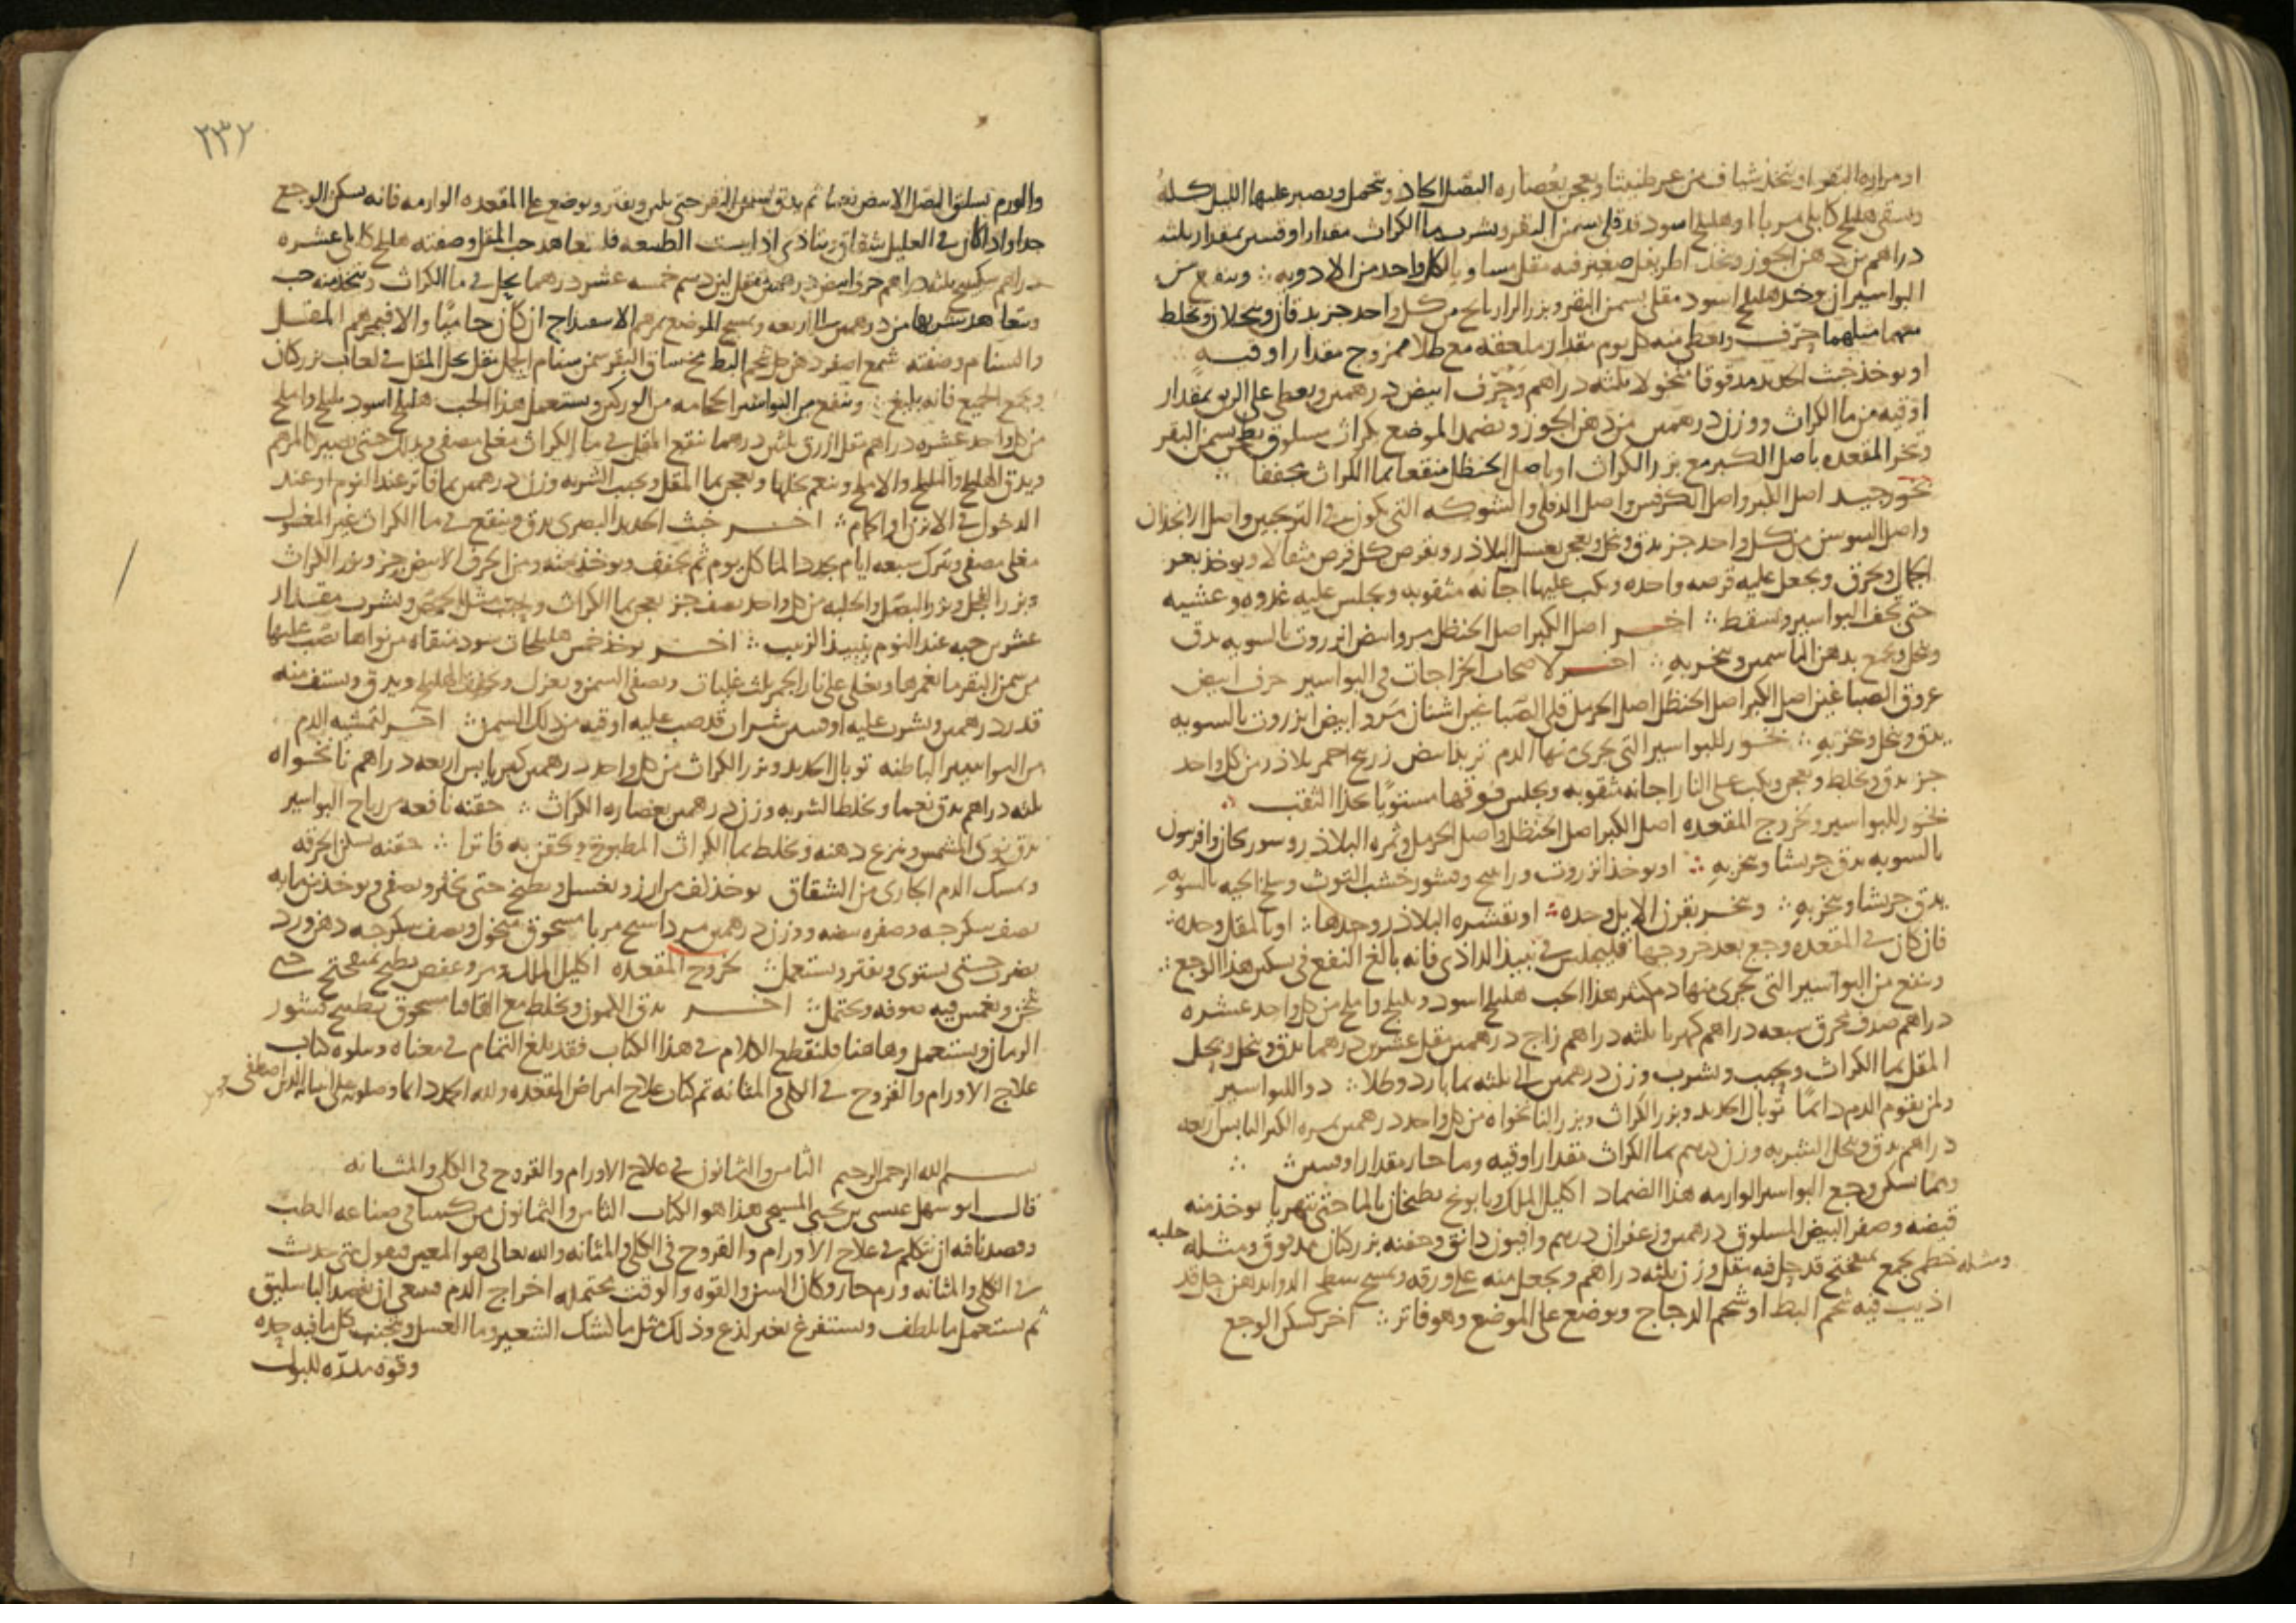 او مرارة البقر او يتخذ شياف من عرطنيثا ويعجن بعصاره البصل الحاد وتحمل ويصبر عليها الليل كله
ويسقى هليلج كابلى مربا او هليلج اسود قد قلى بسمن البقر ويشرب بما الكراث مقدار اوقيتين بمقدار ثلثه
دراهم من دهن الجوز ويتخذ اطريفل صغير فيه مقل مساو لكل واحد من الادويه وينفع من
البواسير ان يوخذ هليلج اسود مقلى بسمن البقر وبزر الرازيانج من كل واحد جز يدقان وينخلان ويخلط
معهما مثلهما حرف ويعطى منه كل يوم مقدار ملعقه مع طلا ممزوج مقدار اوقيه
او يوخذ خبث الحديد مدقوقا منخولا ثلثه دراهم وحرف ابيض درهمين ويعطى على الريق بمقدار
اوقيه من ما الكراث ووزن درهمين من دهن الجوز ويضمد الموضع بكراث مسلوق بسمن البقر
وتبخر المقعده باصل الكبر مع بزر الكراث او باصل الحنظل منقعا بما الكراث مجففا
بخور جيد اصل الكبر واصل الكرفس واصل الدفلى والشوكه التى يكون فى الترنجبين واصل الانجدان
واصل السوسن من كل واحد جز يدق وينخل ويعجن بعسل البلاذر ويقرص كل قرص مثقالا ويوخذ بعر
الجمال ويحرق ويجعل عليه قرصه واحده ويكب عليها اجانه مثقوبه ويجلس عليه غدوه وعشيه
حتى تجف البواسير وتسقط اخر اصل الكبر اصل الحنظل مر وابيض انزروت بالسويه يدق
وينخل ويجمع بدهن الياسمين ويبخر به اخر لاصحاب الخراجات فى البواسير حرف ابيض
عروق الصباغين اصل الكبر اصل الحنظل اصل الحرمل قلى الصباغين اشنان مرو ابيض انزروت بالسويه
يدق وينخل ويبخر به بخور للبواسير التى يجرى منها الدم تربد ابيض زرنيخ احمر بلاذر من كل واحد
جز يدق ويخلط ويعجن ويكب على النار اجانه مثقوبه ويجلس فوقها مستويا بحذا الثقب
بخور للبواسير وخروج المقعده اصل الكبر اصل الحنظل واصل الحرمل وثمره البلاذر وسورنجان وافربيون
بالسويه يدق جريشا ويبخر به او يوخذ انزروت وراسخ وقشور خشب التوث وسلخ الحيه بالسويه
يدق جريشا ويبخر به ويبخر بقرن الايل وحده او بقشره البلاذر وحدها او بالمقل وحده
فان كان فى المقعده وجع بعد خروجها فليجلس فى نبيذ الداذى فانه بالغ النفع فى تسكين هذا الوجع
وينفع من البواسير التى يجرى منها دم كثير هذا الحب هليلج اسود وبليلج واملج من كل واحد عشره
دراهم صدف محرق سبعه دراهم كهربا ثلثه دراهم زاج درهمين مقل عشرين درهما يدق وينخل ويحل
المقل بما الكراث ويحبب ويشرب وزن درهمين الى ثلثه بما بارد وطلا دوا للبواسير
ولمن يقوم الدم دائما توبال الحديد وبزر الكراث وبزر النانخواه من كل واحد درهمين ثمره الكبر اليابس اربعه
دراهم يدق وينخل الشربه وزن درهم بما الكراث مقدار اوقيه وما حار مقدار اوقيتين
ومما يسكن وجع البواسير الوارمه هذا الضماد اكليل الملك وبابونج يطبخان بالما حتى يتهريا يوخذ منه
قبضه وصفر البيض المسلوق درهمين وزعفران درهم وافيون دانق وحفنه بزر كتان مدقوق ومثله حلبه
ومثله خطمى يجمع بميفختج قد حل فيه مقل وزن ثلثه دراهم ويجعل منه على ورقه ويمسح سطح الدوا بدهن حل قد
اذيب فيه شحم البط او شحم الدجاج ويوضع على الموضع وهو فاتر اخر يسكن الوجع
٢٣٢
والورم يسلق البصل الابيض نعما ثم يدق بسمن البقر حتى يلين ويفتر ويوضع على المقعده الوارمه فانه يسكن الوجع
جدا واذا كان فى العليل شقاق يتاذى اذا يبست الطبيعه فليتعاهد حب المقل وصفته هليلج كابلى عشره
دراهم سكبينج ثلثه دراهم حرف ابيض درهمين مقل لين دسم خمسه عشر درهما يحل فى ما الكراث ويتخذ منه حب
ويتعاهد شربها من درهمين الى اربعه ويمسح الموضع بمرهم الاسفيداج ان كان حاميا والا فبمرهم المقل
والسنام وصفته شمع اصفر دهن حل شحم البط مخ ساق البقر سمن سنام الجمل مقل يحل المقل فى لعاب بزر كتان
ويجمع الجميع فانه بليغ وينفع من البواسير الحجامه من الوركين ويستعمل هذا الحب هليلج اسود بليلج واملج
من كل واحد عشره دراهم مقل ازرق ثلثين درهما ينقع المقل فى ما الكراث مغلى مصفى ويدلك حتى يصير كالمرهم
ويدق الهليلج والبليلج والاملج وينعم نخلها ويعجن بما المقل ويحبب الشربه وزن درهمين بما فاتر عند النوم او عند
الدخول فى الابزن او الحمام اخر خبث الحديد البصرى يدق وينقع فى ما الكراث غير المغسول
مغلى مصفى ويترك سبعه ايام يجدد الما كل يوم ثم يجفف ويوخذ منه ومن الحرف الابيض جز وبزر الكراث
وبزر الفجل وبزر البصل والحلبه من كل واحد نصف جز يعجن بما الكراث ويحبب مثل الحمص ويشرب مقدار
عشرين حبه عند النوم بنبيذ الزبيب اخر يوخذ خمس هليلجات سود منقاه من نواها يصب عليها
من سمن البقر ما يغمرها ويغلى على نار الجمر ثلث غليات ويصفى السمن ويعزل ويجفف الهليلج ويدق ويستف منه
قدر درهمين ويشرب عليه اوقيتين شراب قد صب عليه اوقيه من ذلك السمن اخر لتمشيه الدم
من البواسير الباطنه توبال الحديد وبزر الكراث من كل واحد درهمين كبر يابس اربعه دراهم نانخواه
ثلثه دراهم يدق نعما ويخلط الشربه وزن درهمين بعصاره الكراث حقنه نافعه من رياح البواسير
يدق نوى المشمش وينزع دهنه ويخلط بما الكراث المطبوخ ويحقن به فاترا حقنه تسكن الحرقه
وتمسك الدم الجارى من الشقاق يوخذ كف من ارز ويغسل ويطبخ حتى يخثر ويصفى ويوخذ من مايه
نصف سكرجه وصفره بيضه ووزن درهمين مرداسنج مربا مسحوق منخول ونصف سكرجه دهن ورد
يضرب حتى يستوى ويفتر ويستعمل لخروج المقعده اكليل الملك ومر وعفص يطبخ بميفختج حتى
يثخن ويغمس فيه صوفه وتحتمل اخر يدق الكمون ويخلط مع اقاقيا مسحوق بطبيخ قشور
الرمان ويستعمل وهاهنا فلنقطع الكلام فى هذا الكتاب فقد بلغ التمام فى معناه ويتلوه كتاب
علاج الاورام والقروح فى الكلى والمثانه تم كتاب علاج امراض المقعده ولله الحمد دائما وصلوته على انبيائه الذين اصطفى
بسم الله الرحمن الرحيم الثامن والثمانون فى علاج الاورام والقروح فى الكلى والمثانه
قال ابو سهل عيسى بن يحيى المسيحى هذا هو الكتاب الثامن والثمانون من كتبنا فى صناعه الطب
وقصدنا فيه ان نتكلم فى علاج الاورام والقروح فى الكلى والمثانه والله تعالى هو المعين فنقول متى حدث
فى الكلى والمثانه ورم حار وكان السن والقوه والوقت يحتمل اخراج الدم فينبغى ان يفصد الباسليق
ثم يستعمل ما يلطف ويستفرغ بغير لذع وذلك مثل ما كشك الشعير وما العسل ويجتنب كل ما فيه حده
وقوه مدره للبول